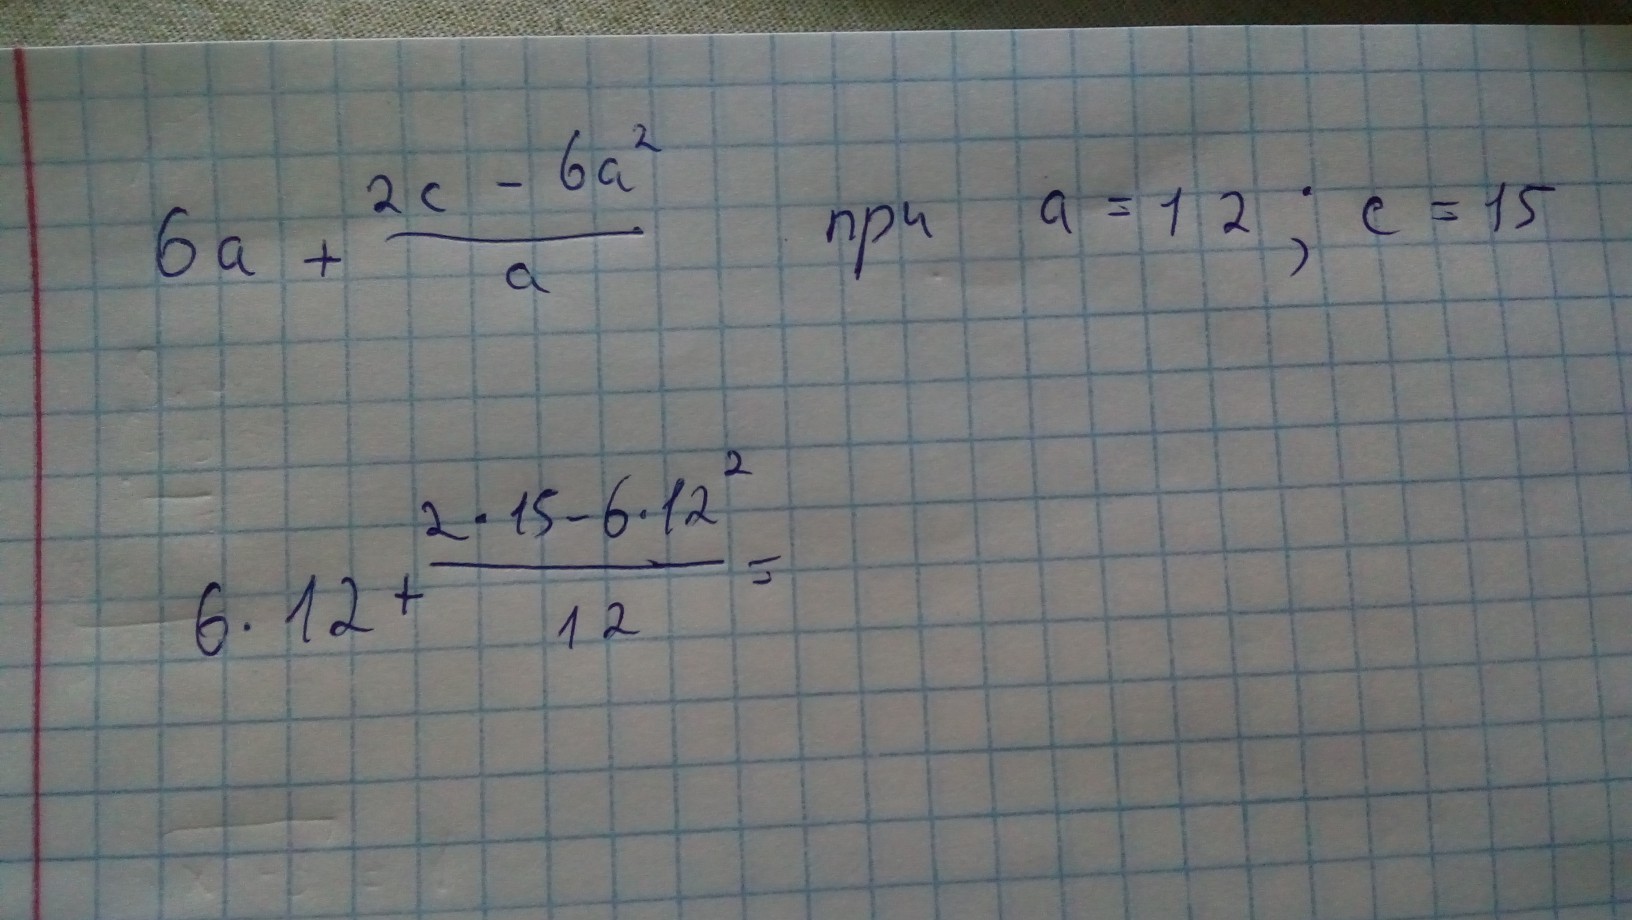 6a + \frac{2c - 6a^2}{a} при a = 12 ; c = 15
6 · 12 + \frac{2 · 15 - 6 · 12^2}{12} =